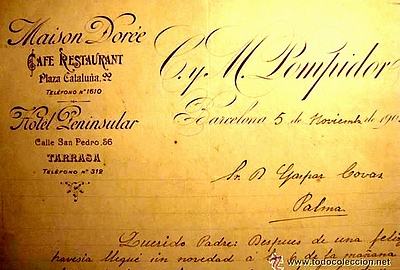 Maison Dorée
CAFE RESTAURANT
Plaza Cataluña, 22
TELÉFONO Nº 1610
Hotel Peninsular
Calle San Pedro, 56
TARRASA
TELÉFONO Nº 312
C. y M. Pompidor
Barcelona 5 de Noviembre de 190
Sr. D. Gaspar Covas
Palma
Querido Padre: Despues de una feliz
travesia llegué sin novedad a las 6 de la mañana
todocoleccion.net